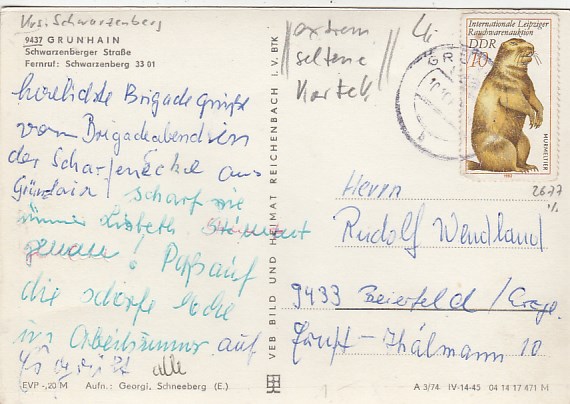 Krs. Schwarzenberg
9437 GRÜNHAIN
Schwarzenberger Straße
Fernruf: Schwarzenberg 33 01
herzlichste Brigadegrüße
vom Brigadeabend in
der Scharfen Ecke aus
Grünhain
Scharf wie
immer Lisbeth. Stimmt
genau! Paßauf
die scharfe Ecke
ins Arbeitszimmer auf
alle
EVP -,20 M Aufn.: Georgi, Schneeberg (E.)
VEB BILD UND HEIMAT REICHENBACH I. V. BTK
extrem
seltene
Karte!!
Internationale Leipziger
Rauchwarenauktion
DDR
10
MURMELTIER
1982
GR
2677
Herrn
Rudolf Wendland
9433 Beierfeld / Erzge.
Ernst-Thälmann 10
A 3/74 IV-14-45 04 14 17 471 M